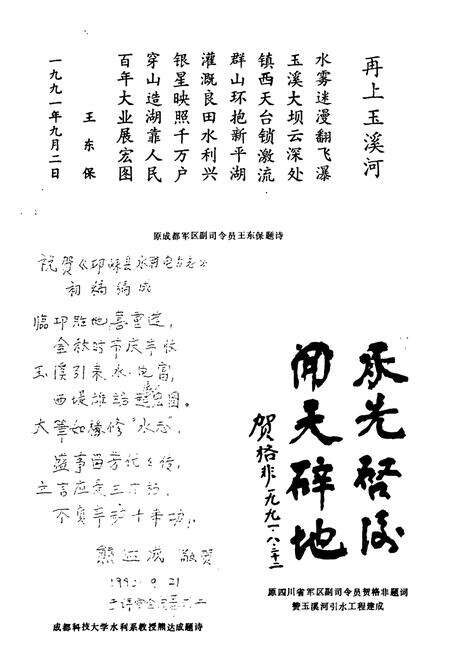 再上玉溪河
水雾迷漫翻飞瀑
玉溪大坝云深处
镇西天台锁激流
群山环抱新平湖
灌溉良田水利兴
银星映照千万户
穿山造湖靠人民
百年大业展宏图
王东保
一九九一年九月二日
原成都军区副司令员王东保题诗
祝贺《邛崃县水利电力志》
初稿编成
临邛胜地喜重逢，
金秋时节庆丰收
玉溪引来水电富，
西堤雄踞起宏图。
大笔如椽修“水志”，
盛事留芳代代传，
立言应是三不朽，
熊达成 敬贺
1991.9.21
成都科技大学水利系教授熊达成题诗
承先启后
开天辟地
贺格非一九九一.八.二十二
原四川省军区副司令员贺格非题词
赞玉溪河引水工程建成